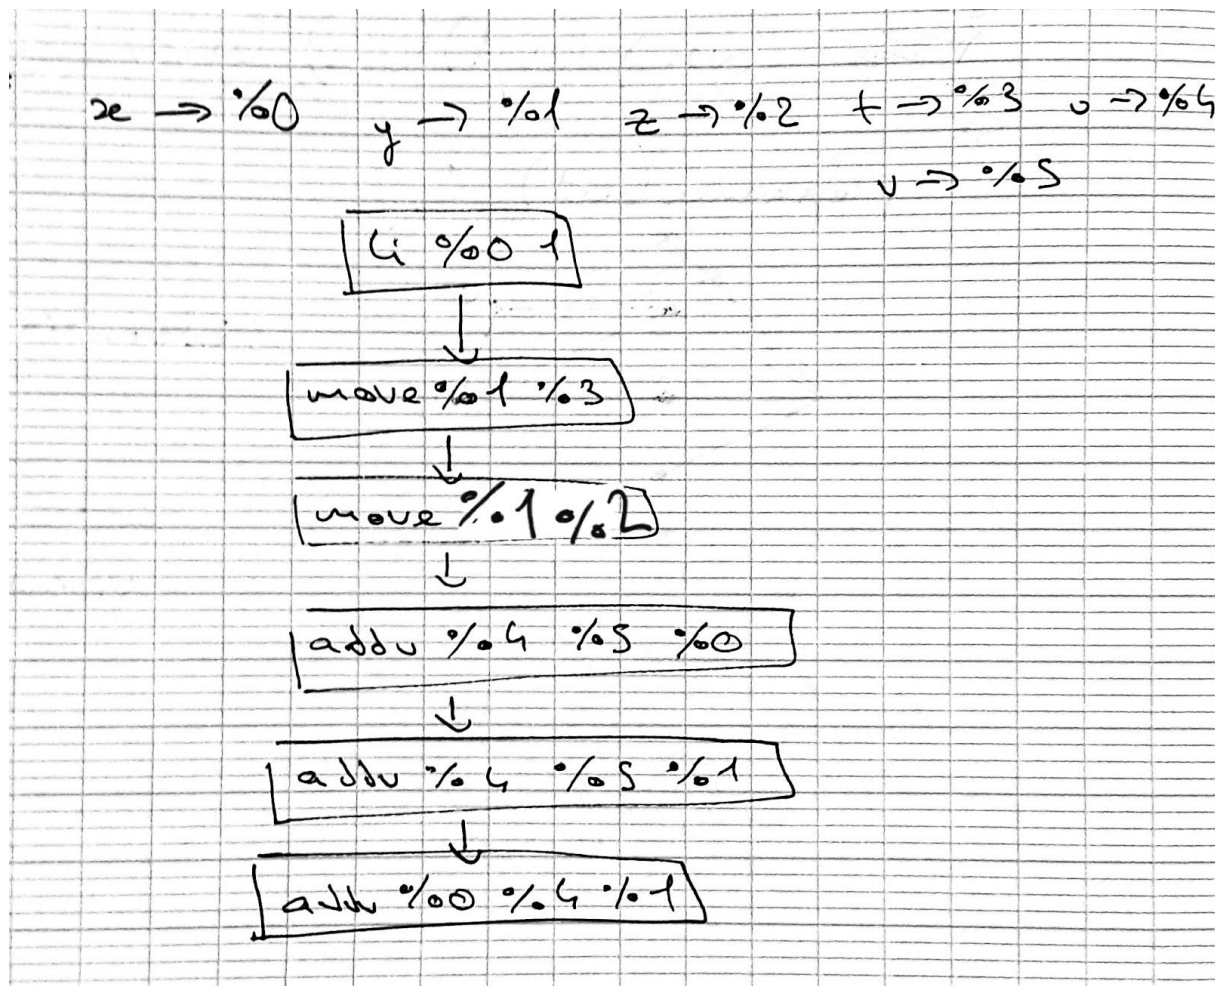 x → %0 y → %1 z → %2 t → %3 u → %4
v → %5
li %0 1
move %1 %3
move %1 %2
addu %4 %5 %0
addu %4 %5 %1
addu %0 %4 %1